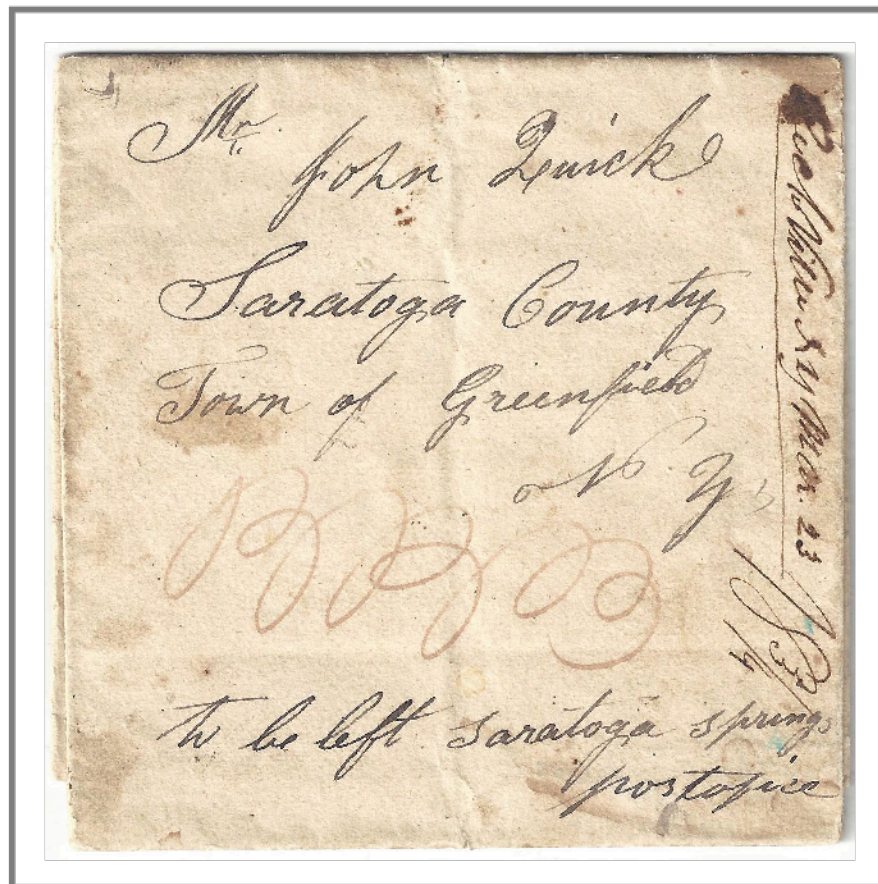 Mr.
John Quick
Saratoga County
Town of Greenfield
N. Y.
to be left Saratoga springs
postofice
N Y Mar. 23
18¾